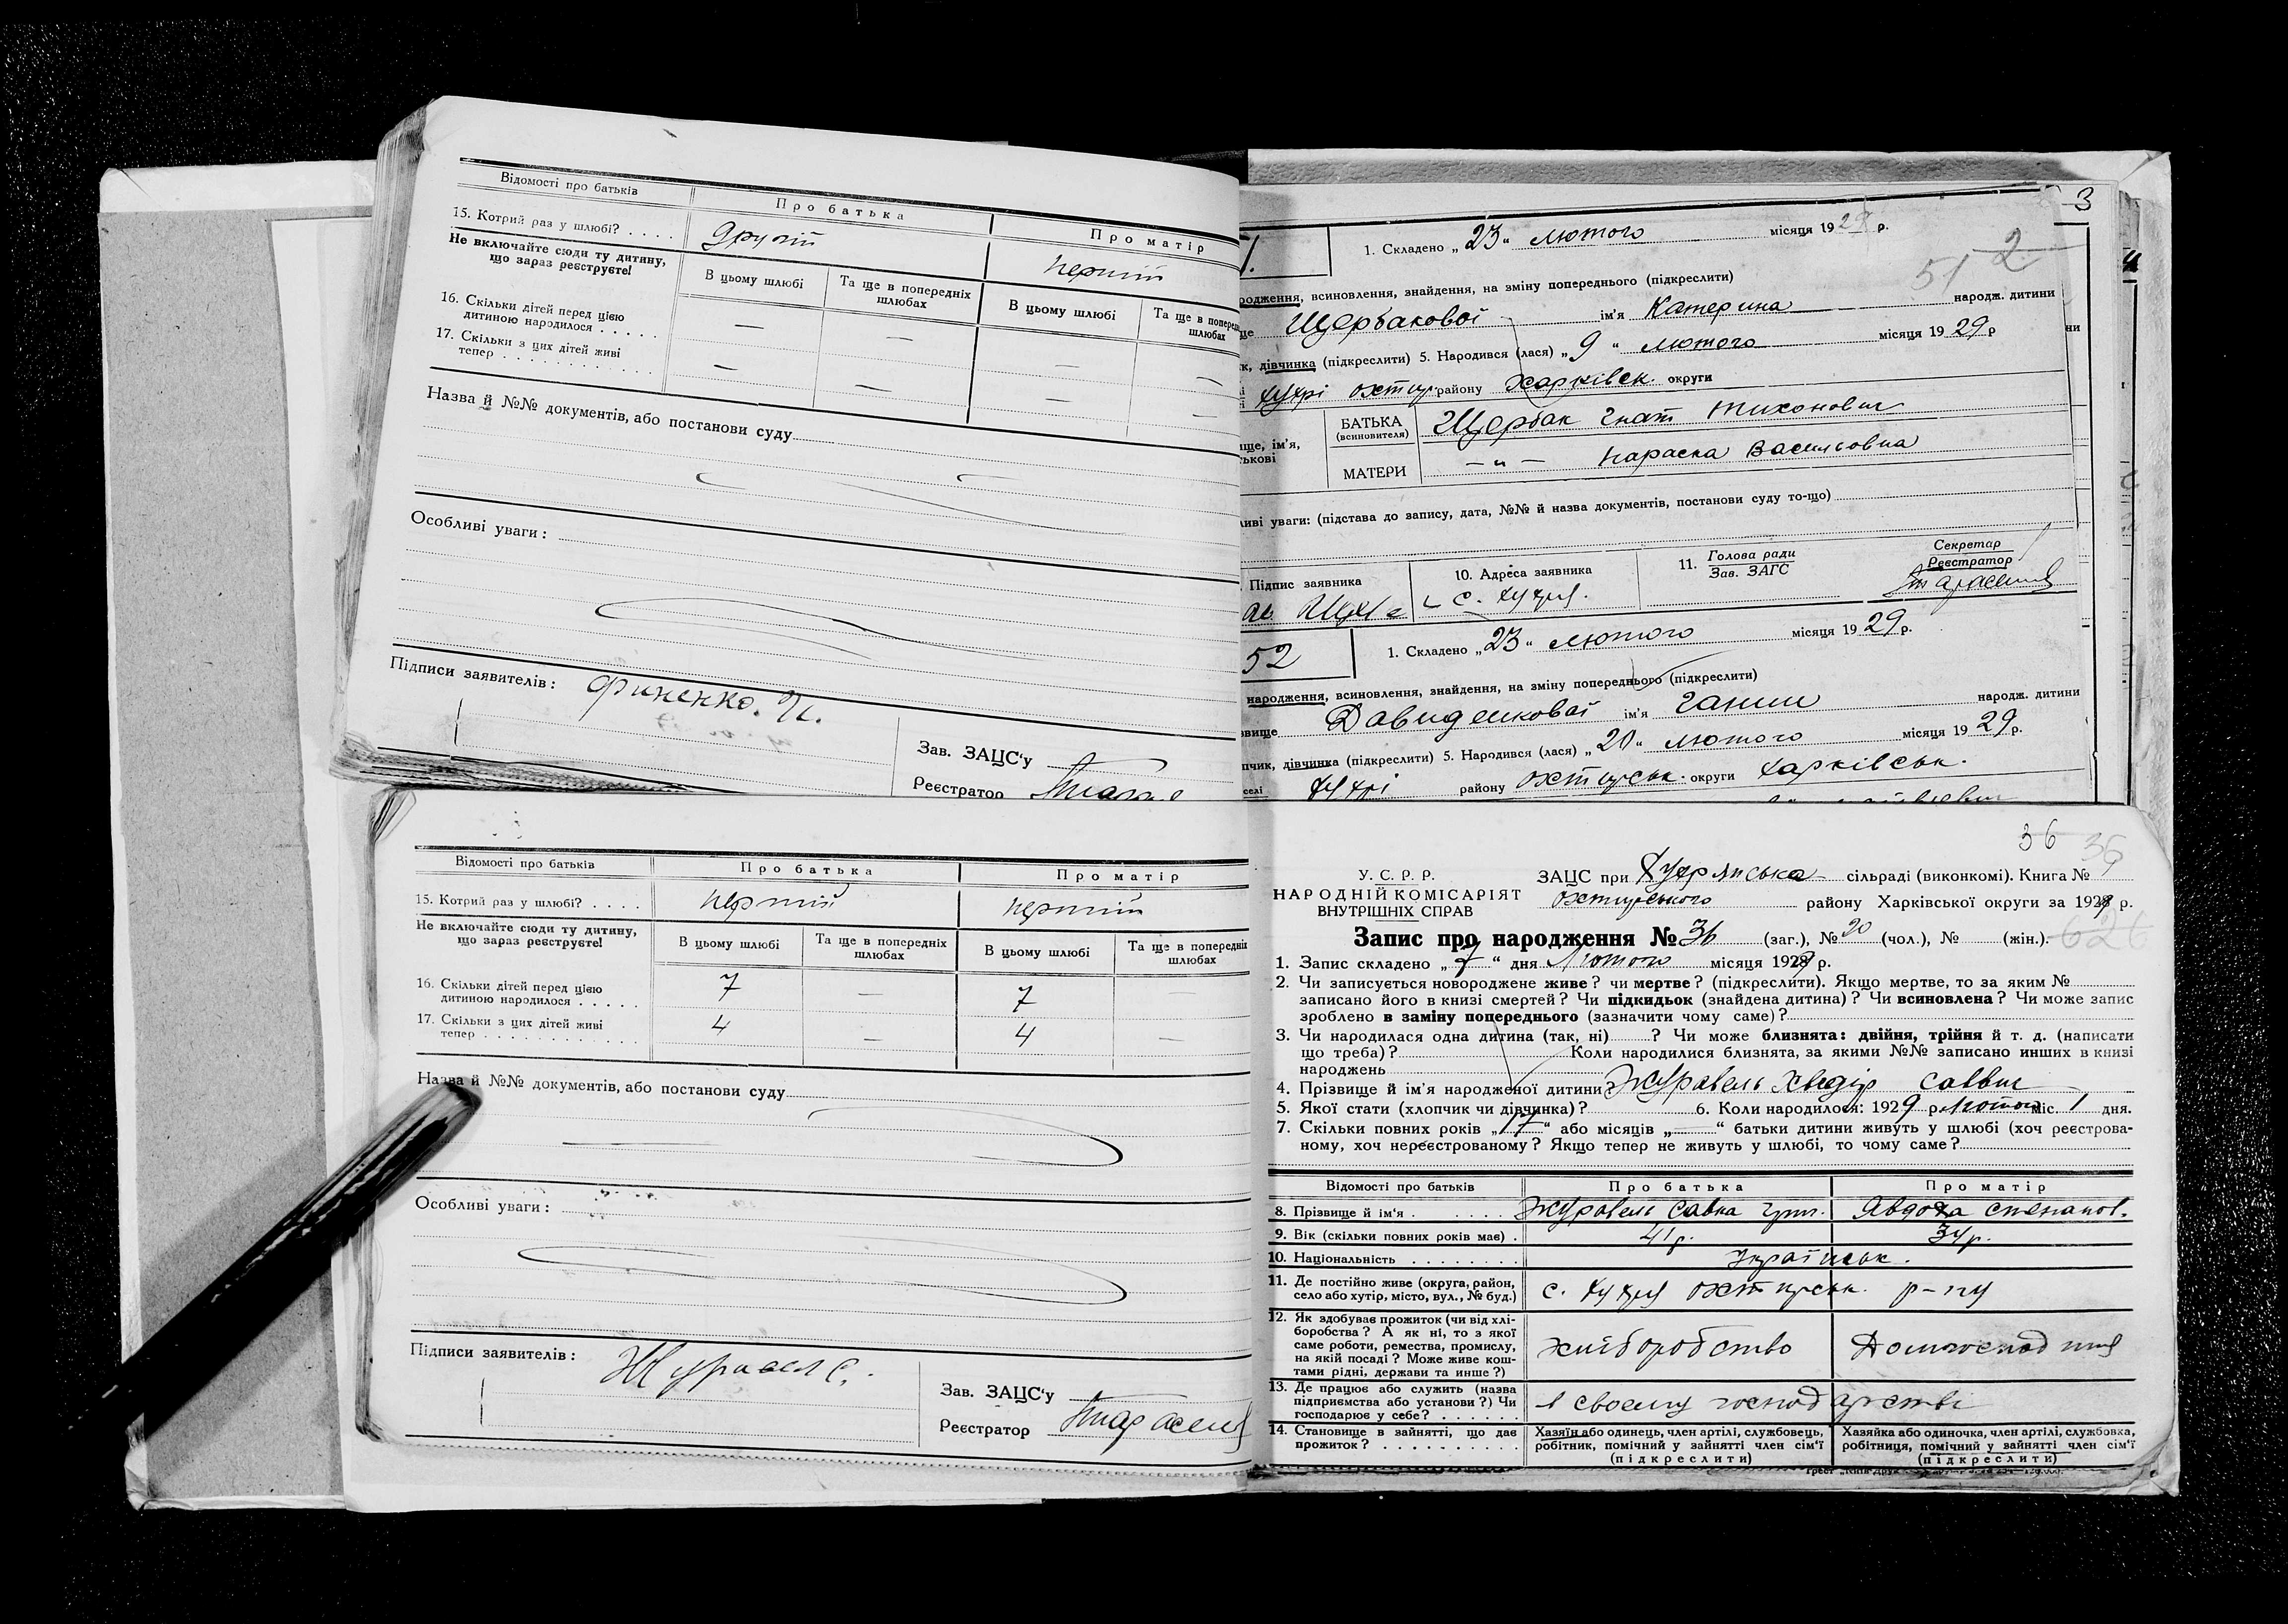 Відомості про батьків
Про батька
Про матір
15. Котрий раз у шлюбі? . . . .
другий
перший
Не включайте сюди ту дитину,
що зараз реєструєте!
В цьому шлюбі
Та ще в попередніх
шлюбах
В цьому шлюбі
Та ще в попередн
шлюбах
16. Скільки дітей перед цією
дитиною народилося . . . . .
— — — —
17. Скільки з цих дітей живі
тепер . . . . . . . . . . . .
— — — —
Назва й №№ документів, або постанови суду
Особливі уваги:
Підписи заявителів: Финенко. И.
Зав. ЗАЦС'у
Реєстратор
3
1. Складено „23“ лютого місяця 1929 р.
51 2
родження, всиновлення, знайдення, на зміну попереднього (підкреслити)
Щербакової ім'я Катерина народж. дитини
к, дівчинка (підкреслити) 5. Народився (лася) „9“ лютого місяця 1929 р
хухрі охтир. району Харківськ. округи
ще, ім'я,
ькові
БАТЬКА
(всиновителя)
Щербак Гнат Тихонович
МАТЕРИ
—„— Параска Васильовна
иві уваги: (підстава до запису, дата, №№ й назва документів, постанови суду то-що)
Підпис заявника
10. Адреса заявника
с. хухря.
11. Голова ради
Зав. ЗАГС
Секретар
Реєстратор
52
1. Складено „23“ лютого місяця 1929 р.
народження, всиновлення, знайдення, на зміну попереднього (підкреслити)
звище Давиденкової ім'я Ганни народж. дитини
пчик, дівчинка (підкреслити) 5. Народився (лася) „20“ лютого місяця 1929 р.
селі хухрі району Охтирськ. округи харківськ.
Відомості про батьків
Про батька
Про матір
15. Котрий раз у шлюбі? . . . .
перший
перший
Не включайте сюди ту дитину,
що зараз реєструєте!
В цьому шлюбі
Та ще в попередніх
шлюбах
В цьому шлюбі
Та ще в попередніх
шлюбах
16. Скільки дітей перед цією
дитиною народилося . . . . .
7 — 7 —
17. Скільки з цих дітей живі
тепер . . . . . . . . . . . .
4 — 4 —
Назва й №№ документів, або постанови суду
Особливі уваги:
Підписи заявителів: Журавел С.
Зав. ЗАЦС'у
Реєстратор
36 36
У. С. Р. Р.
НАРОДНІЙ КОМІСАРІЯТ
ВНУТРІШНІХ СПРАВ
ЗАЦС при Хухрянська сільраді (виконкомі). Книга №
Охтирського району Харківської округи за 1929 р.
Запис про народження № 36 (заг.), № 20 (чол.), № (жін.).
1. Запис складено „7“ дня Лютого місяця 1929 р.
2. Чи записується новороджене живе? чи мертве? (підкреслити). Якщо мертве, то за яким №
записано його в книзі смертей? Чи підкидьок (знайдена дитина)? Чи всиновлена? Чи може запис
зроблено в заміну попереднього (зазначити чому саме)?
3. Чи народилася одна дитина (так, ні) ? Чи може близнята: двійня, трійня й т. д. (написати
що треба)? Коли народилися близнята, за якими №№ записано инших в книзі
народжень
4. Прізвище й ім'я народженої дитини? Журавель Хведір Саввич
5. Якої стати (хлопчик чи дівчинка)? 6. Коли народилося: 1929 р. Лютого міс. 1 дня.
7. Скільки повних років „17“ або місяців „—“ батьки дитини живуть у шлюбі (хоч реєстрова-
ному, хоч нереєстрованому? Якщо тепер не живуть у шлюбі, то чому саме?
Відомості про батьків
Про батька
Про матір
8. Прізвище й ім'я . . . . .
Журавель Савка Гри.
Явдоха степанов.
9. Вік (скільки повних років має) .
41 р.
34 р.
10. Національність . . . . . . . .
Українськ.
11. Де постійно живе (округа, район,
село або хутір, місто, вул., № буд.)
с. хухря охтирськ. р-ну
12. Як здобуває прожиток (чи від хлі-
боробства? А як ні, то з якої
саме роботи, ремества, промислу,
на якій посаді? Може живе кош-
тами рідні, держави та инше?)
хліборобство
13. Де працює або служить (назва
підприємства або установи?) Чи
господарює у себе? . . . . . .
в своєму господарстві
14. Становище в зайнятті, що дає
прожиток? . . . . . . . . . .
Хазяїн або одинець, член артілі, службовець,
робітник, помічний у зайнятті член сім'ї
(підкреслити)
Хазяйка або одиночка, член артілі, службовка,
робітниця, помічний у зайнятті член сім'ї
(підкреслити)